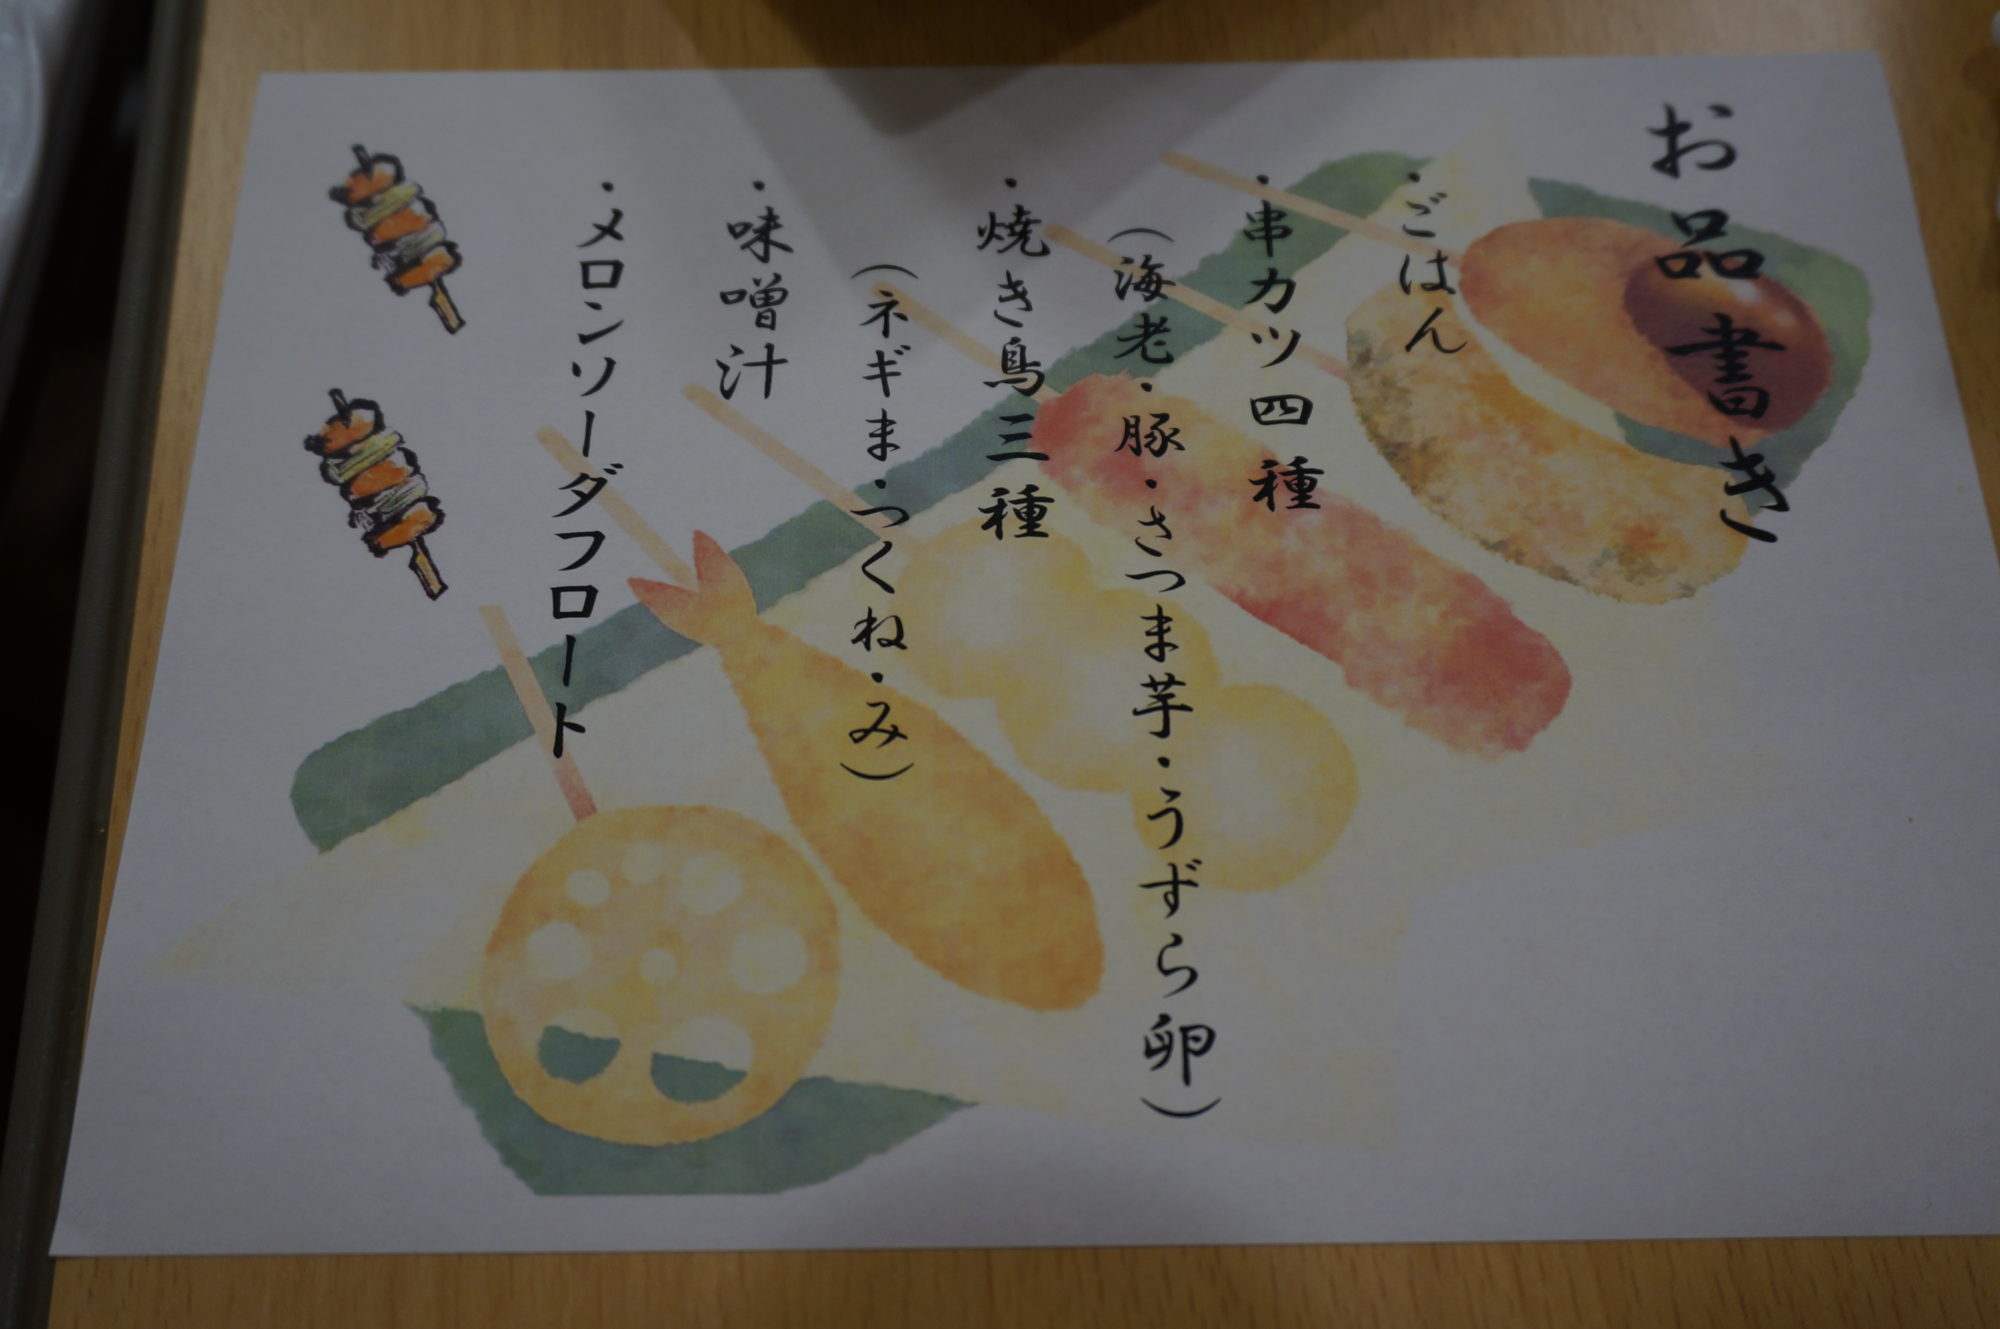 お品書き
・ごはん
・串カツ四種
（海老・豚・さつま芋・うずら卵）
・焼き鳥三種
（ネギま・つくね・み）
・味噌汁
・メロンソーダフロート